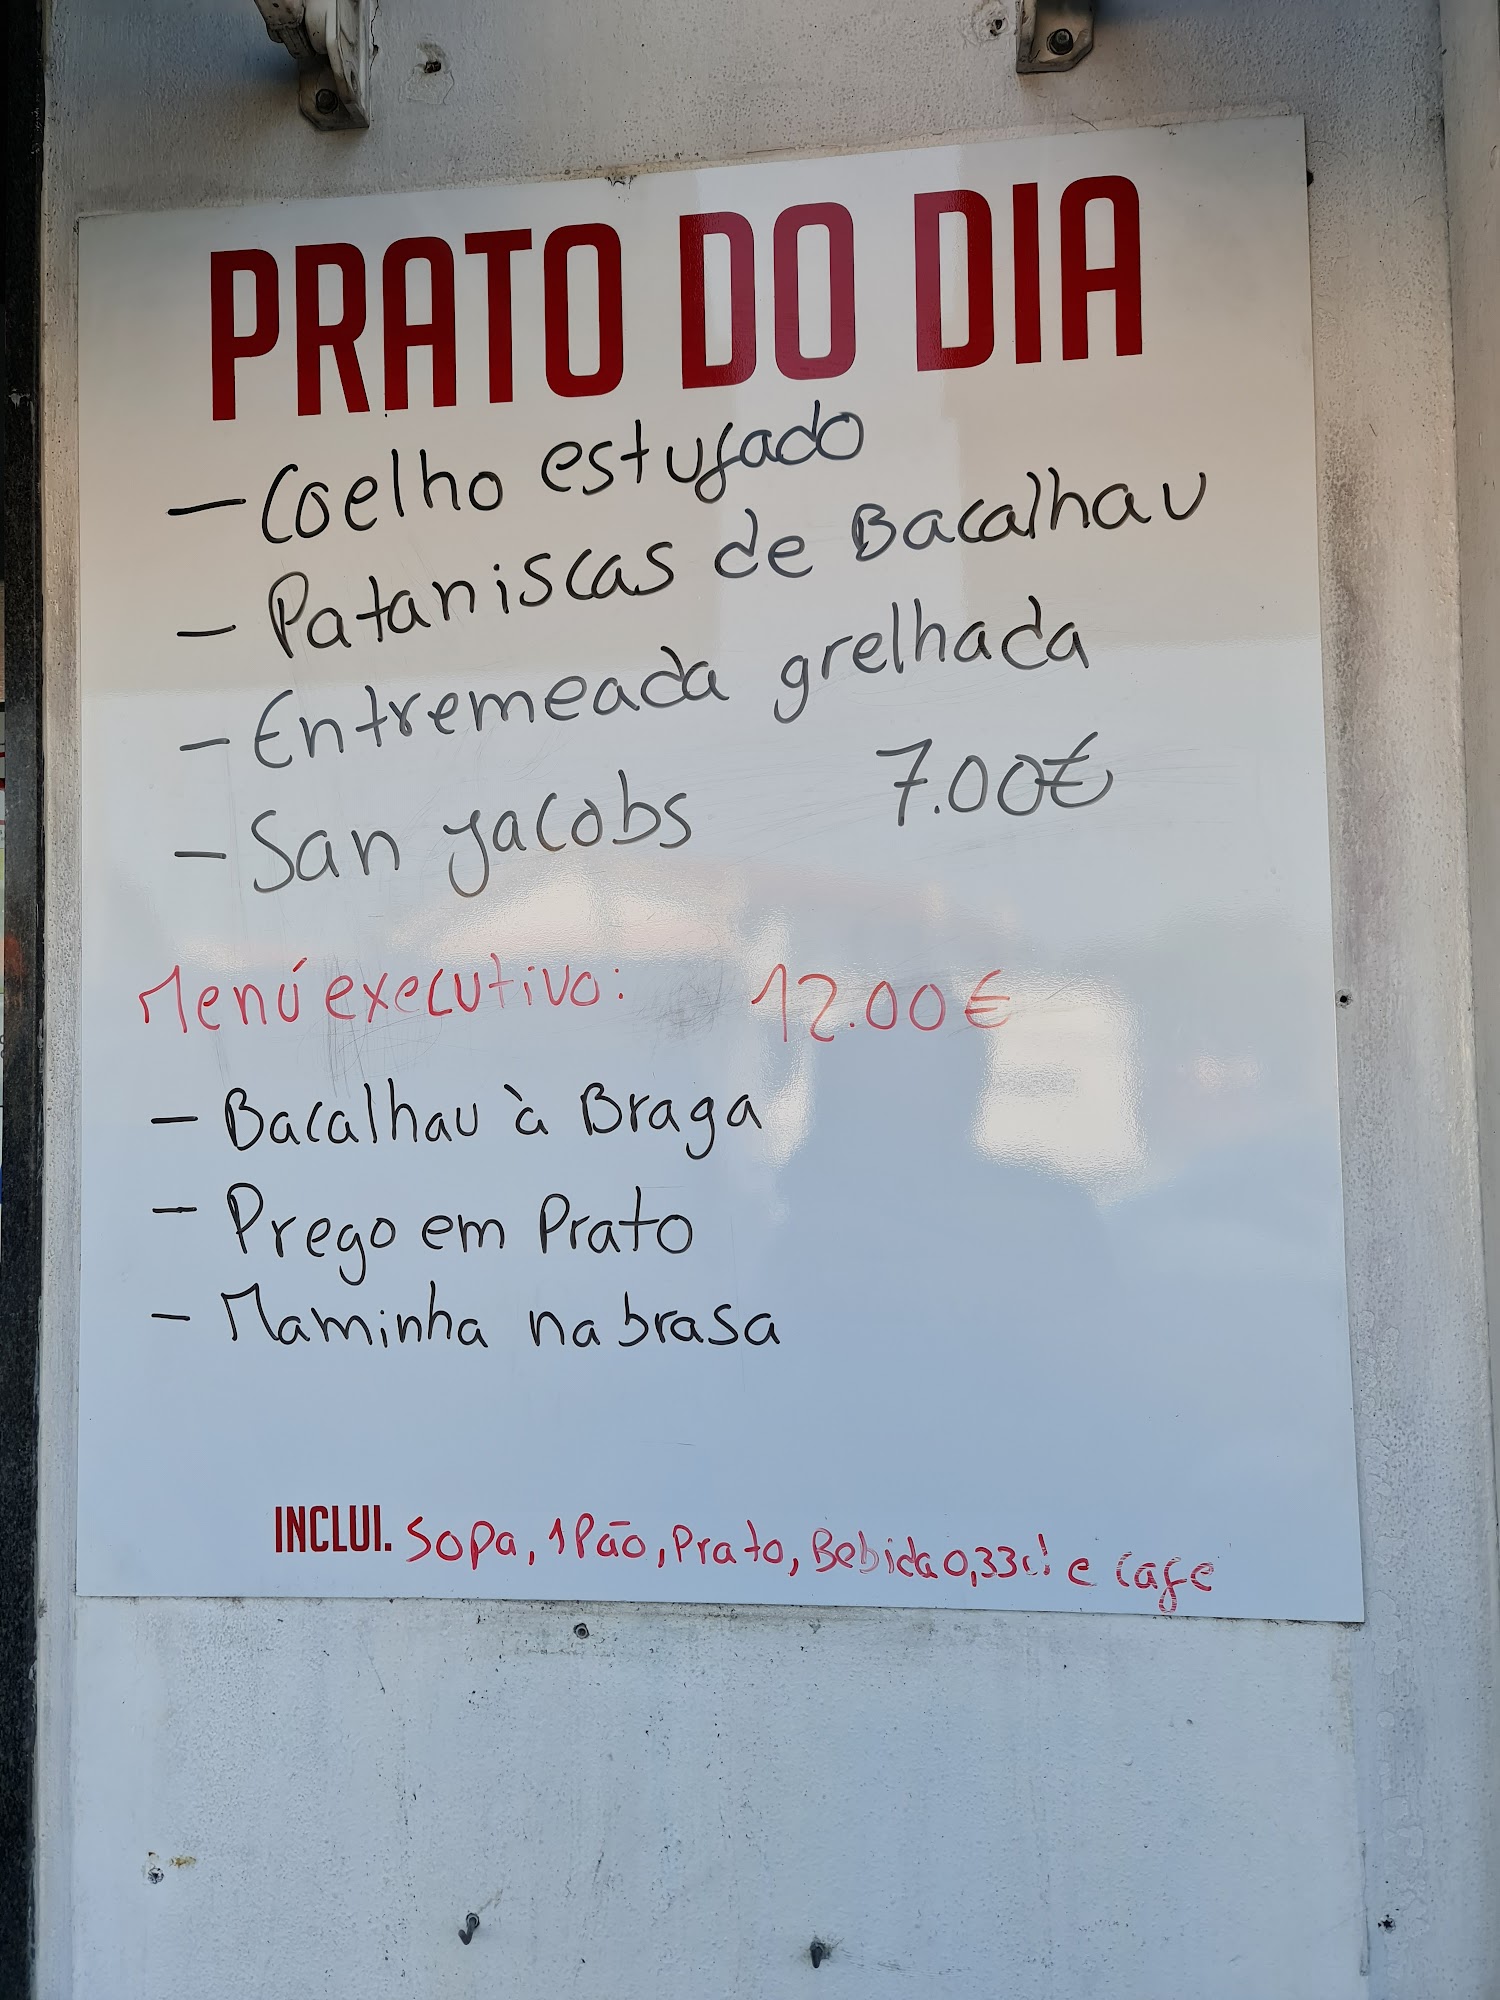 PRATO DO DIA
- Coelho estufado
- Pataniscas de Bacalhau
- Entremeada grelhada
- San jacobs 7.00€
Menú executivo: 12.00€
- Bacalhau à Braga
- Prego em Prato
- Maminha na brasa
INCLUI. Sopa, 1 Pão, Prato, Bebida 0,33cl e cafe